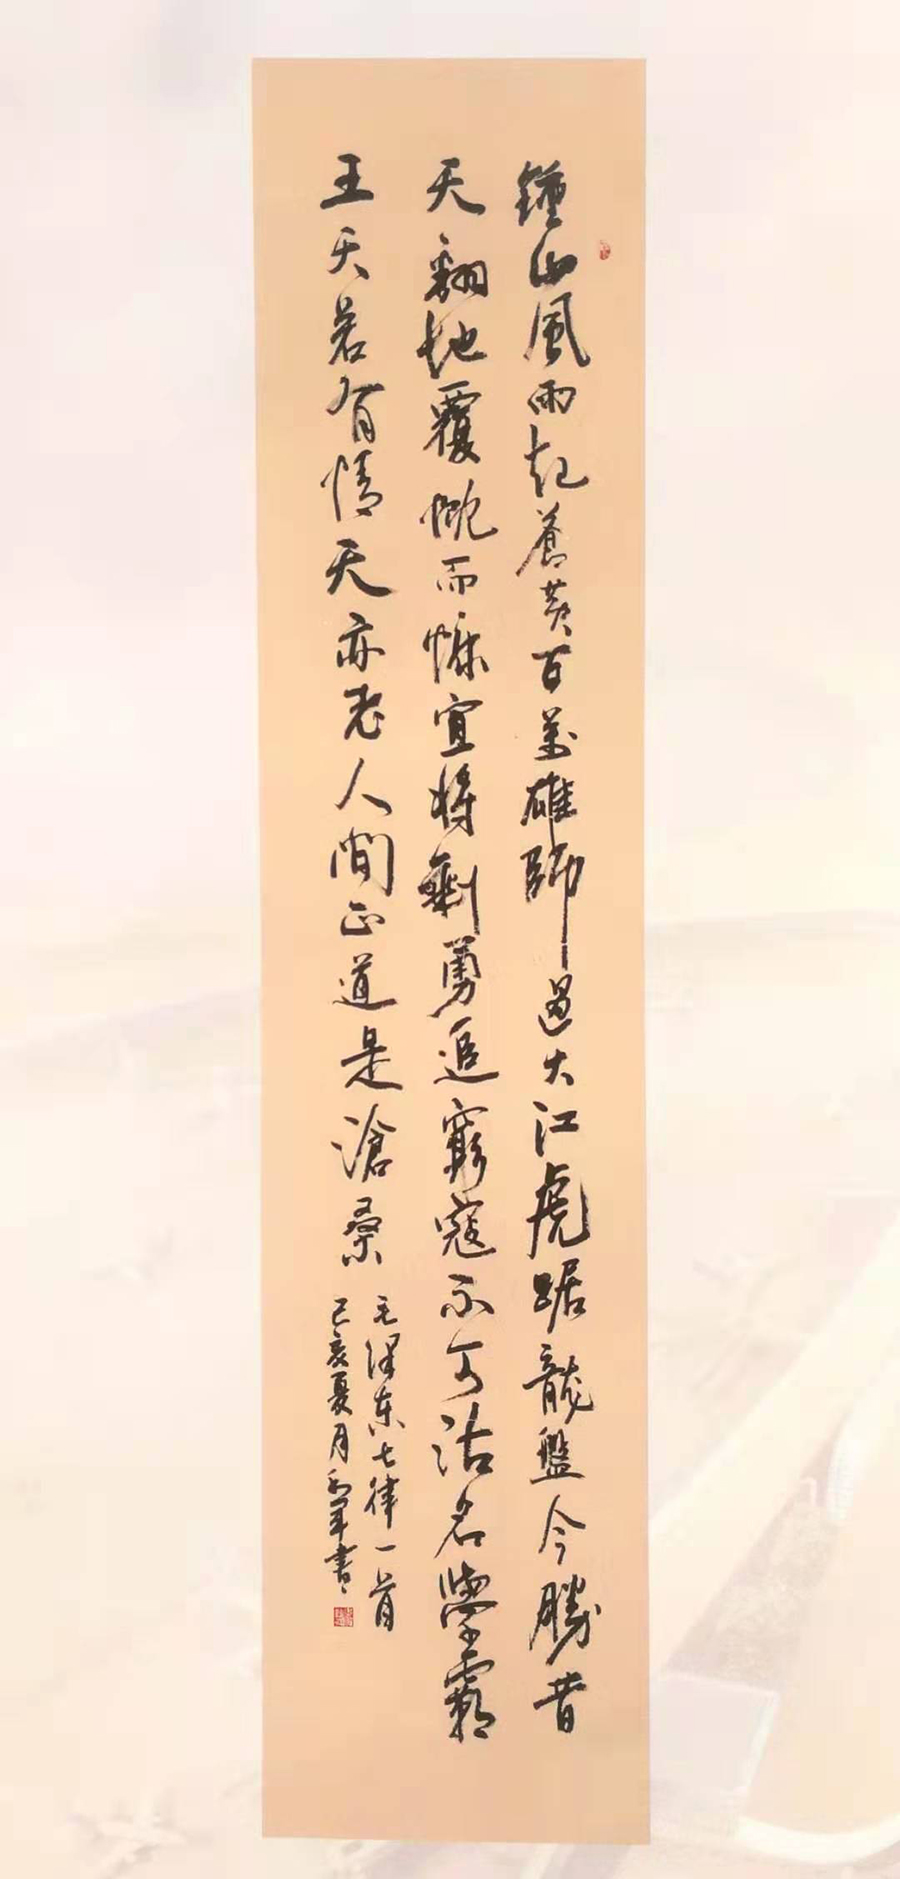 鍾山風雨起蒼黃百萬雄師過大江虎踞龍盤今勝昔
天翻地覆慨而慷宜將剩勇追窮寇不可沽名學霸
王天若有情天亦老人間正道是滄桑
毛澤東七律一首
己亥夏月軍書